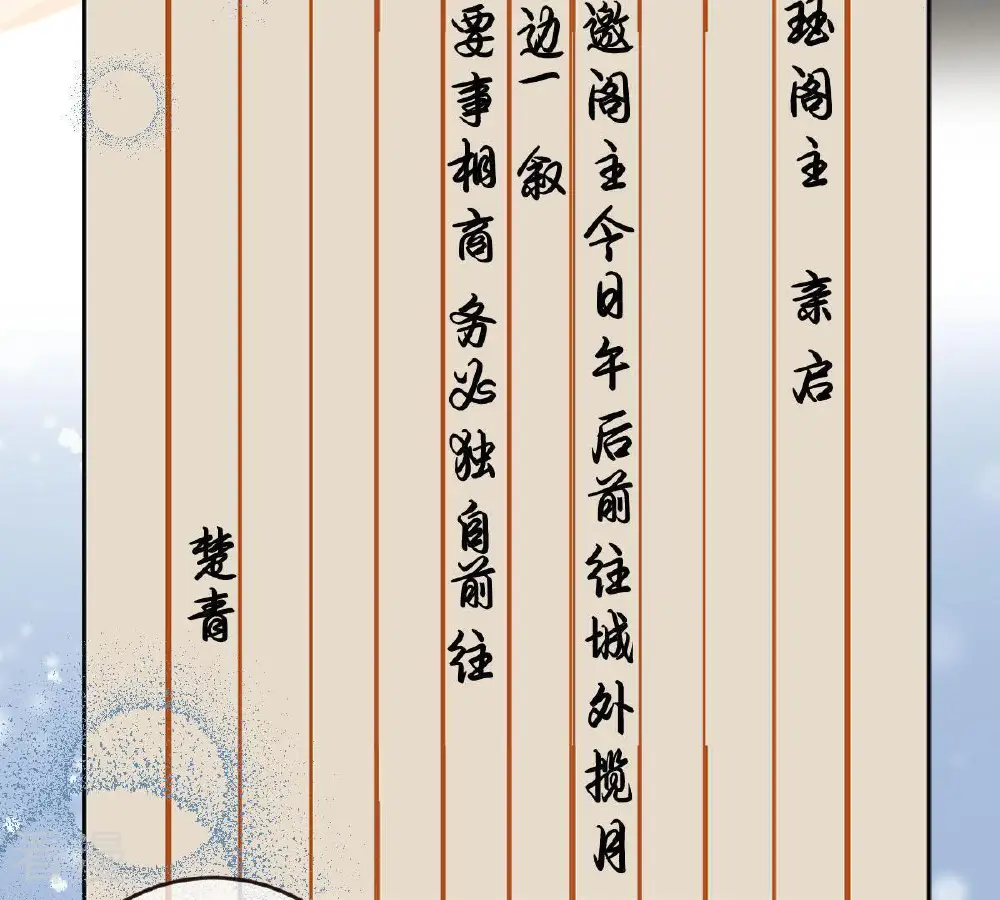 珏阁主 亲启
邀阁主今日午后前往城外揽月
边一叙
要事相商 务必独自前往
楚青